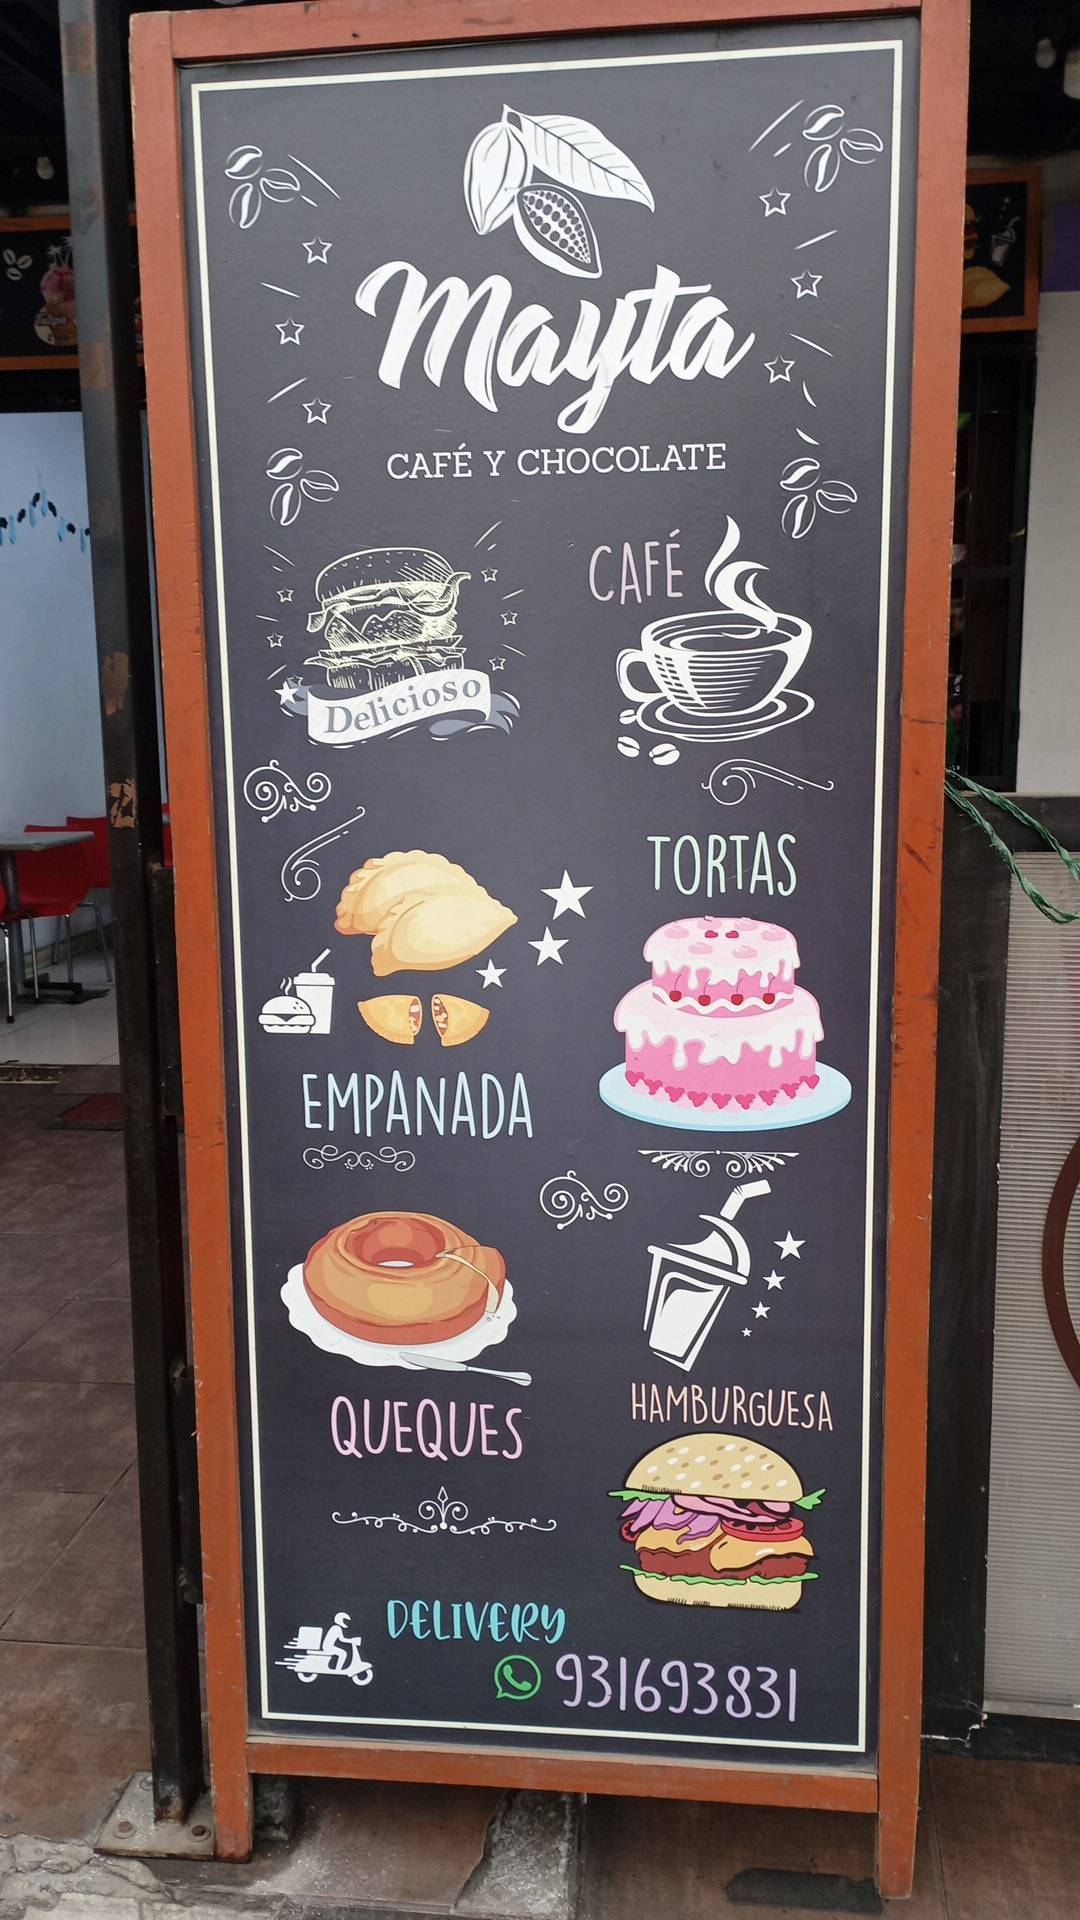 Mayta
CAFÉ Y CHOCOLATE
Delicioso
CAFÉ
TORTAS
EMPANADA
QUEQUES
HAMBURGUESA
DELIVERY
931693831